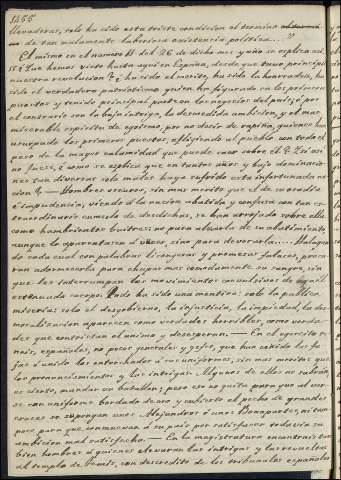 1455
llevaderas, solo ha sido esta triste condicion al termino
de tan malamente laboriosa existencia politica...."
El mismo en el numero 11 del 26 de dicho mes y año se esplica asi.
= ¿Que hemos visto hasta aqui en España, desde que tuvo principio
nuestra revolucion? ¿ha sido el merito, ha sido la honradez, ha
sido el verdadero patriotismo quien ha figurado en los primeros
puestos y tenido principal parte en los negocios del pais, ó por
el contrario son la baja intriga, la desmedida ambicion, y el mas
miserable espiritu de egoismo, por no decir de rapiña, quienes han
usurpado los primeros puestos, afligiendo al pueblo con todo el
peso de la mayor calamidad que puede caer sobre él? Si asi
no fuese, ¿como se esplica que en tantos años y bajo dominacio-
nes tan diversas solo males haya sufrido esta infortunada na-
cion? — Hombres oscuros, sin mas merito que el de su osadia
é impudencia, viendo á la nacion abatida y confusa con tan es-
traordinario cumulo de desdichas, se han arrojado sobre ella
como hambrientos buitres: no para aliviarla de su abatimiento
aunque lo aparentasen á veces, sino para devorarla.... Halagan-
do cada cual con palabras lisongeras y promesas falaces, procu-
ran adormecerla para chupar mas comodamente su sangre, sin
que les interrumpan los movimientos convulsivos de aquel
estenuado cuerpo. Todo ha sido una mentira: solo la publica
miseria; solo el desgobierno, la injusticia, la impiedad, la des-
moralizacion aparecen como verdades horribles, como verda-
des que contristan el animo y desesperan. — En el ejercito te-
neis, españoles, no pocos generales y gefes, que han ceñido las fa-
jas ó unido los entorchados á sus uniformes, sin mas meritos que
los pronunciamientos y las intrigas. Algunos de ellos no sabrán,
es cierto, mandar un batallon; pero eso no quita para que al ver-
se con uniformes bordados de oro y cubierto el pecho de grandes
cruces se supongan unos Alejandros ó unos Bonapartes, ni tam-
poco para que conmuevan á su pais por satisfacer todavia su
ambicion mal satisfecha. — En la magistratura encontrais tam-
bien hombres á quienes elevaron las intrigas y las revueltas
al templo de Temis, con descredito de los tribunales españoles